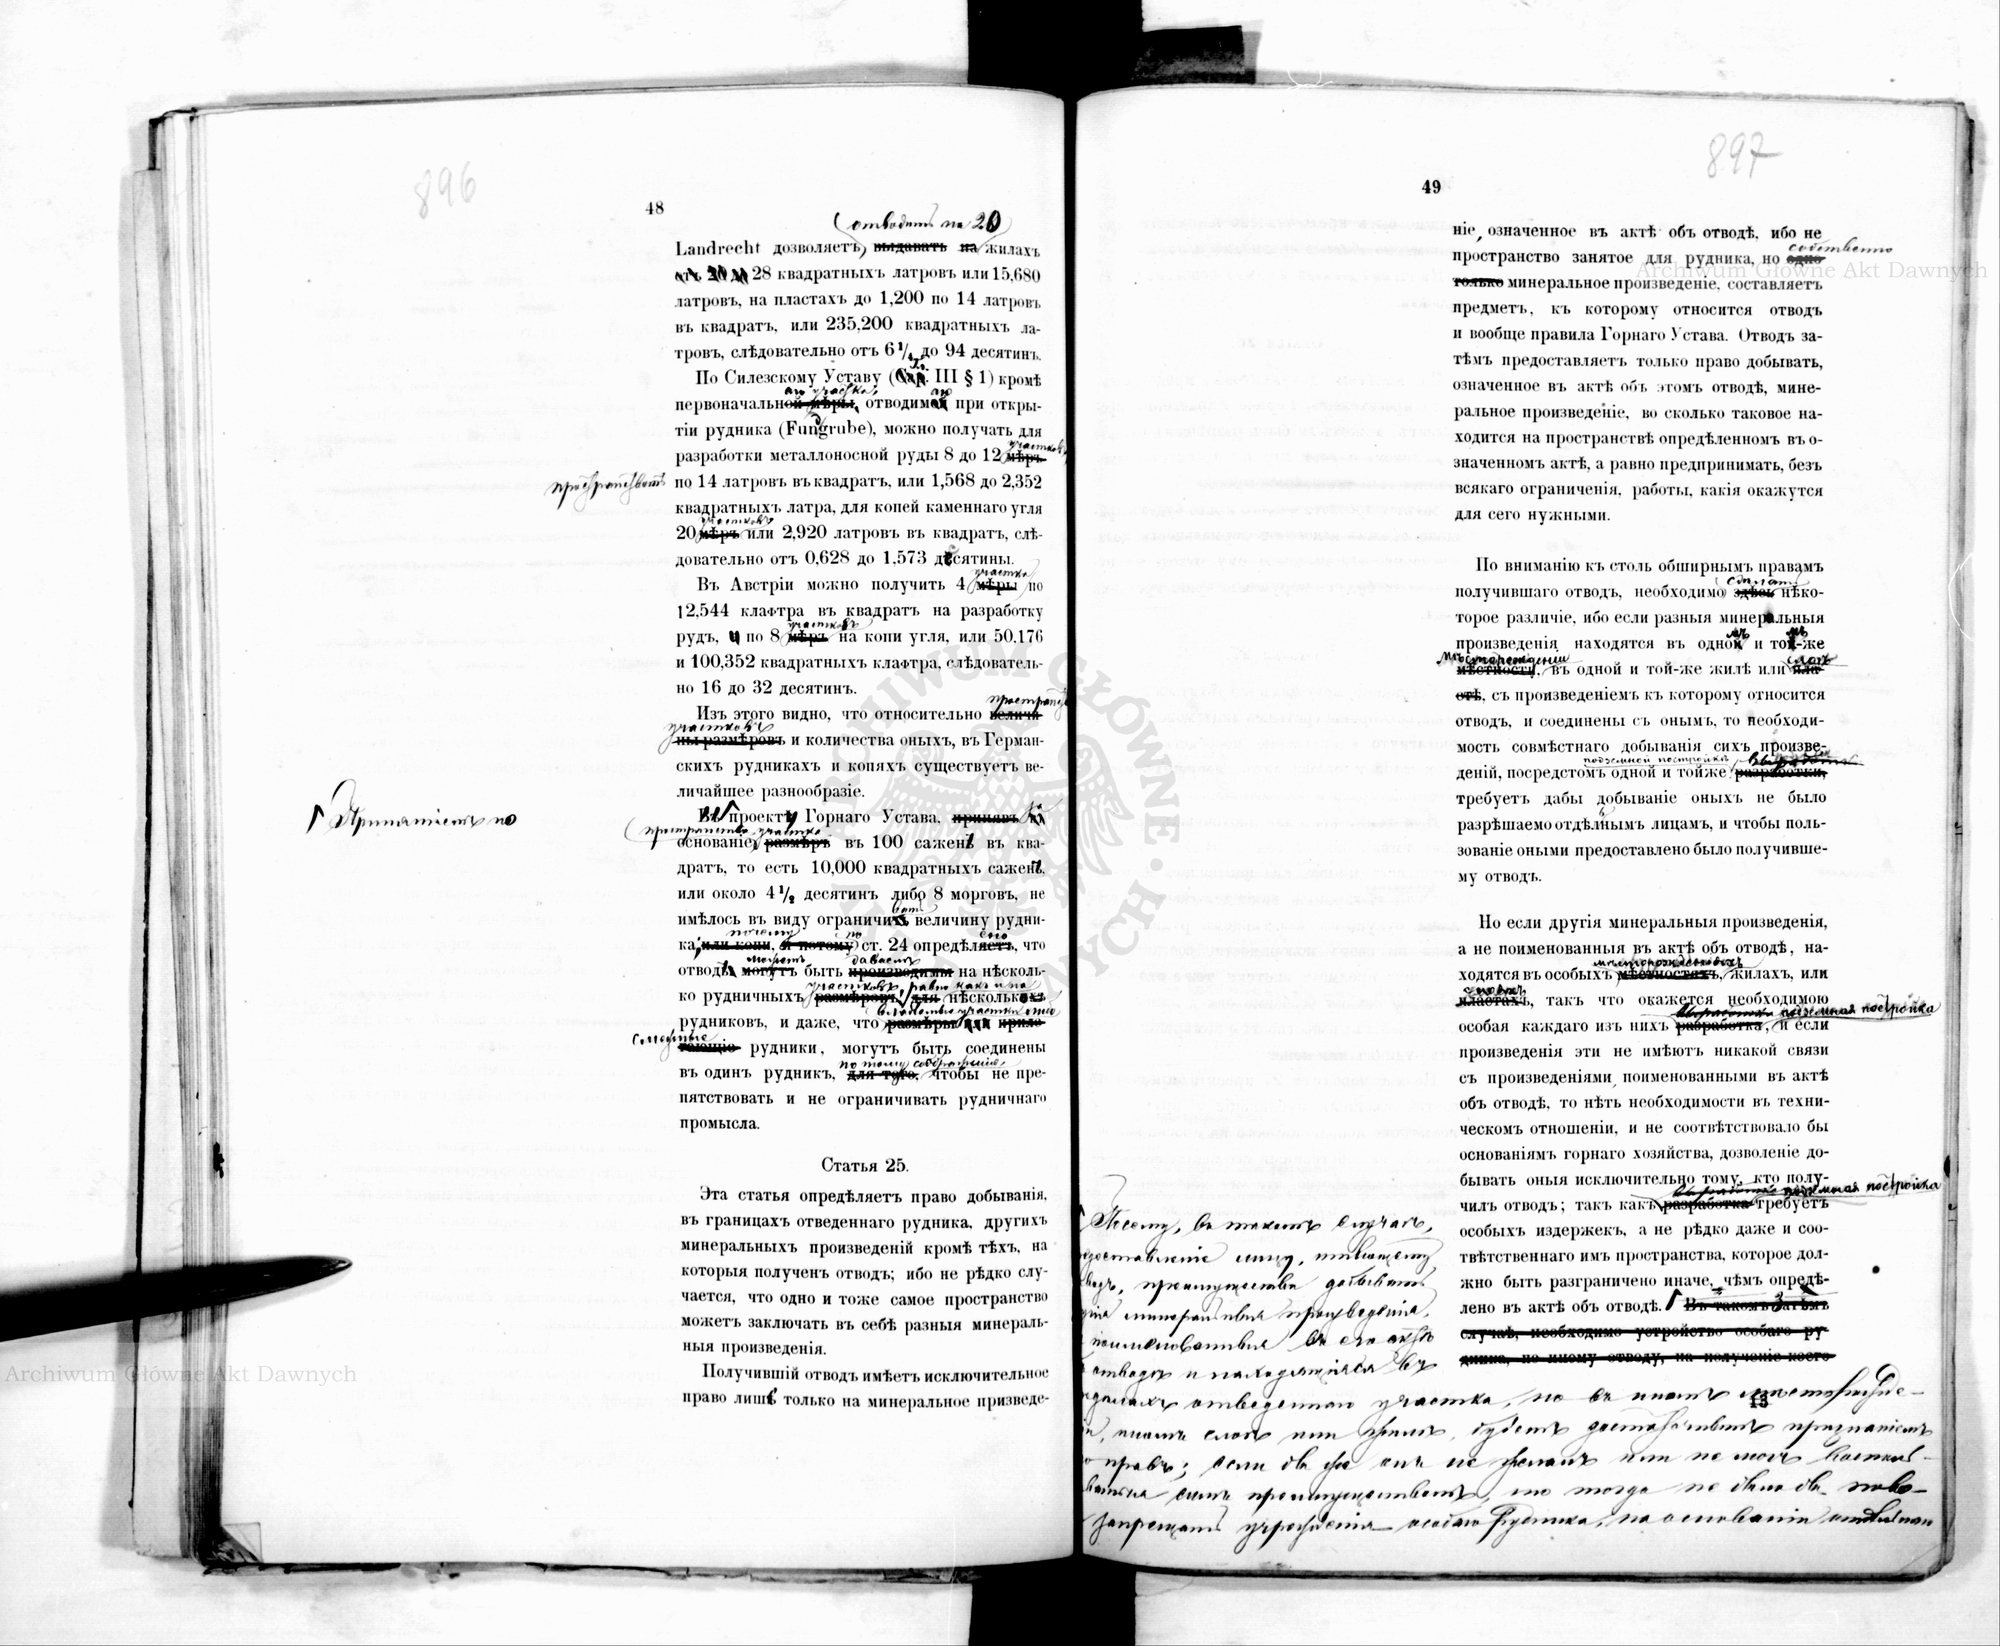 896
48
(отводить по 20)
Landrecht дозволяетъ выдавать на жилахъ
отъ 20 до 28 квадратныхъ латровъ или 15,680
латровъ, на пластахъ до 1,200 по 14 латровъ
въ квадратъ, или 235,200 квадратныхъ ла-
тровъ, слѣдовательно отъ 6 1/4 до 94 десятинъ.
По Силезскому Уставу (Cap. III § 1) кромѣ
аго участка,
первоначальной мѣры, отводимой при откры-
тіи рудника (Fungrube), можно получать для
участковъ
разработки металлоносной руды 8 до 12 мѣръ
пространствомъ
по 14 латровъ въ квадратъ, или 1,568 до 2,352
квадратныхъ латра, для копей каменнаго угля
участковъ
20 мѣръ или 2,920 латровъ въ квадратъ, слѣ-
довательно отъ 0,628 до 1,573 десятины.
участка
Въ Австріи можно получить 4 мѣры по
12,544 клафтра въ квадратъ на разработку
участковъ
рудъ, и по 8 мѣръ на копи угля, или 50.176
и 100,352 квадратныхъ клафтра, слѣдователь-
но 16 до 32 десятинъ.
простран
Изъ этого видно, что относительно величи-
участковъ
ны размѣровъ и количества оныхъ, въ Герман-
скихъ рудникахъ и копяхъ существуетъ ве-
личайшее разнообразіе.
Принятіемъ по
Въ проекту Горнаго Устава, принявъ за
пространство участка
основаніе размѣръ въ 100 сажень въ ква-
дратъ, то есть 10,000 квадратныхъ сажень,
или около 4 1/2 десятинъ либо 8 морговъ, не
вать
имѣлось въ виду ограничить величину рудни-
почему по сего
ка, или копи, и потому ст. 24 опредѣляетъ, что
можетъ даваемъ
отводъ могутъ быть производимы на нѣсколь-
участковъ, равно какъ и на
ко рудничныхъ размѣровъ, для нѣсколькихъ
рудниковъ, и даже, что размѣры или приле-
Смежные
гающіе рудники, могутъ быть соединены
по тому соображенію,
въ одинъ рудникъ, для того, чтобы не пре-
пятствовать и не ограничивать рудничнаго
промысла.
Статья 25.
Эта статья опредѣляетъ право добыванія,
въ границахъ отведеннаго рудника, другихъ
минеральныхъ произведеній кромѣ тѣхъ, на
которыя полученъ отводъ; ибо не рѣдко слу-
чается, что одно и тоже самое пространство
можетъ заключать въ себѣ разныя минераль-
ныя произведенія.
Получившій отводъ имѣетъ исключительное
право лишь только на минеральное призведе-
897
49
ніе, означенное въ актѣ объ отводѣ, ибо не
собственно
пространство занятое для рудника, но одно
только минеральное произведеніе, составляетъ
предметъ, къ которому относится отводъ
и вообще правила Горнаго Устава. Отводъ за-
тѣмъ предоставляетъ только право добывать,
означенное въ актѣ объ этомъ отводѣ, мине-
ральное произведеніе, во сколько таковое на-
ходится на пространствѣ опредѣленномъ въ о-
значенномъ актѣ, а равно предпринимать, безъ
всякаго ограниченія, работы, какія окажутся
для сего нужными.
По вниманію къ столь обширнымъ правамъ
сдѣлать
получившаго отводъ, необходимо здѣсь нѣко-
торое различіе, ибо если разныя минеральныя
произведенія находятся въ одной и той-же
мѣсторожденіи слоѣ
мѣстности, въ одной и той-же жилѣ или пла-
стѣ, съ произведеніемъ къ которому относится
отводъ, и соединены съ онымъ, то необходи-
мость совмѣстнаго добыванія сихъ произве-
подземной постройки
деній, посредстомъ одной и тойже разработки,
требуетъ дабы добываніе оныхъ не было
разрѣшаемо отдѣльнымъ лицамъ, и чтобы поль-
зованіе оными предоставлено было получивше-
му отводъ.
Но если другія минеральныя произведенія,
а не поименованныя въ актѣ объ отводѣ, на-
мѣсторожденіяхъ
ходятся въ особыхъ мѣстностяхъ, жилахъ, или
слояхъ
пластахъ, такъ что окажется необходимою
подземная постройка
особая каждаго изъ нихъ разработка, и если
произведенія эти не имѣютъ никакой связи
съ произведеніями поименованными въ актѣ
объ отводѣ, то нѣтъ необходимости въ техни-
ческомъ отношеніи, и не соотвѣтствовало бы
основаніямъ горнаго хозяйства, дозволеніе до-
бывать оныя исключительно тому, кто полу-
подземная постройка
чилъ отводъ; такъ какъ разработка требуетъ
особыхъ издержекъ, а не рѣдко даже и соо-
твѣтственнаго имъ пространства, которое дол-
жно быть разграничено иначе, чѣмъ опредѣ-
лено въ актѣ объ отводѣ. Въ такомъ Затѣмъ
случаѣ, необходимо устройство особаго ру-
дника, по иному отводу, на полученіе коего
13
Посему, въ такомъ случаѣ,
доставленіе лицу, имѣющему
водъ, преимущества добывать
минеральныя произведенія,
поименованныя въ его актѣ
отводѣ и находящіяся въ
отведеннаго участка, но въ иномъ мѣсторожде-
иномъ слоѣ или жилѣ, будетъ достаточнымъ признаніемъ
правъ; если бы же онъ не желалъ или не могъ воспользо-
ваться симъ преимуществомъ, то тогда не было бы пово-
запрещать учрежденія особаго рудника, на основаніи